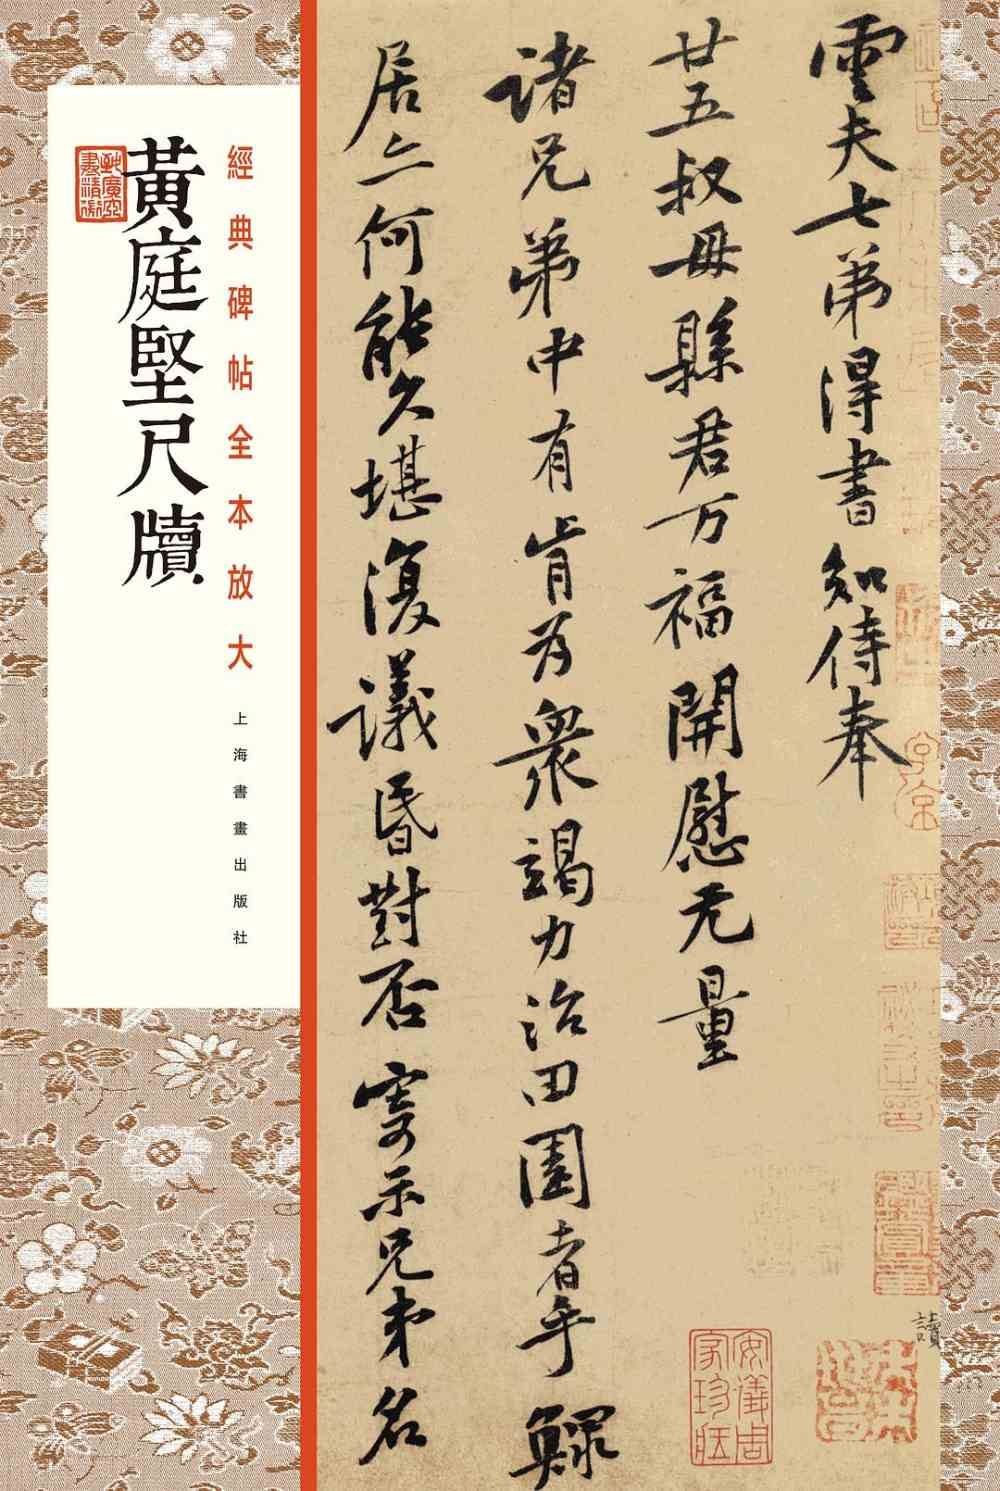 雲夫七弟得書知侍奉
廿五叔母縣君万福開慰无量
諸兄弟中有肯为衆竭力治田園者乎鰥
居亦何能久堪復議昏對否寄示兄弟名
安儀周
家珍藏
經典碑帖全本放大
上海書畫出版社
黃庭堅尺牘